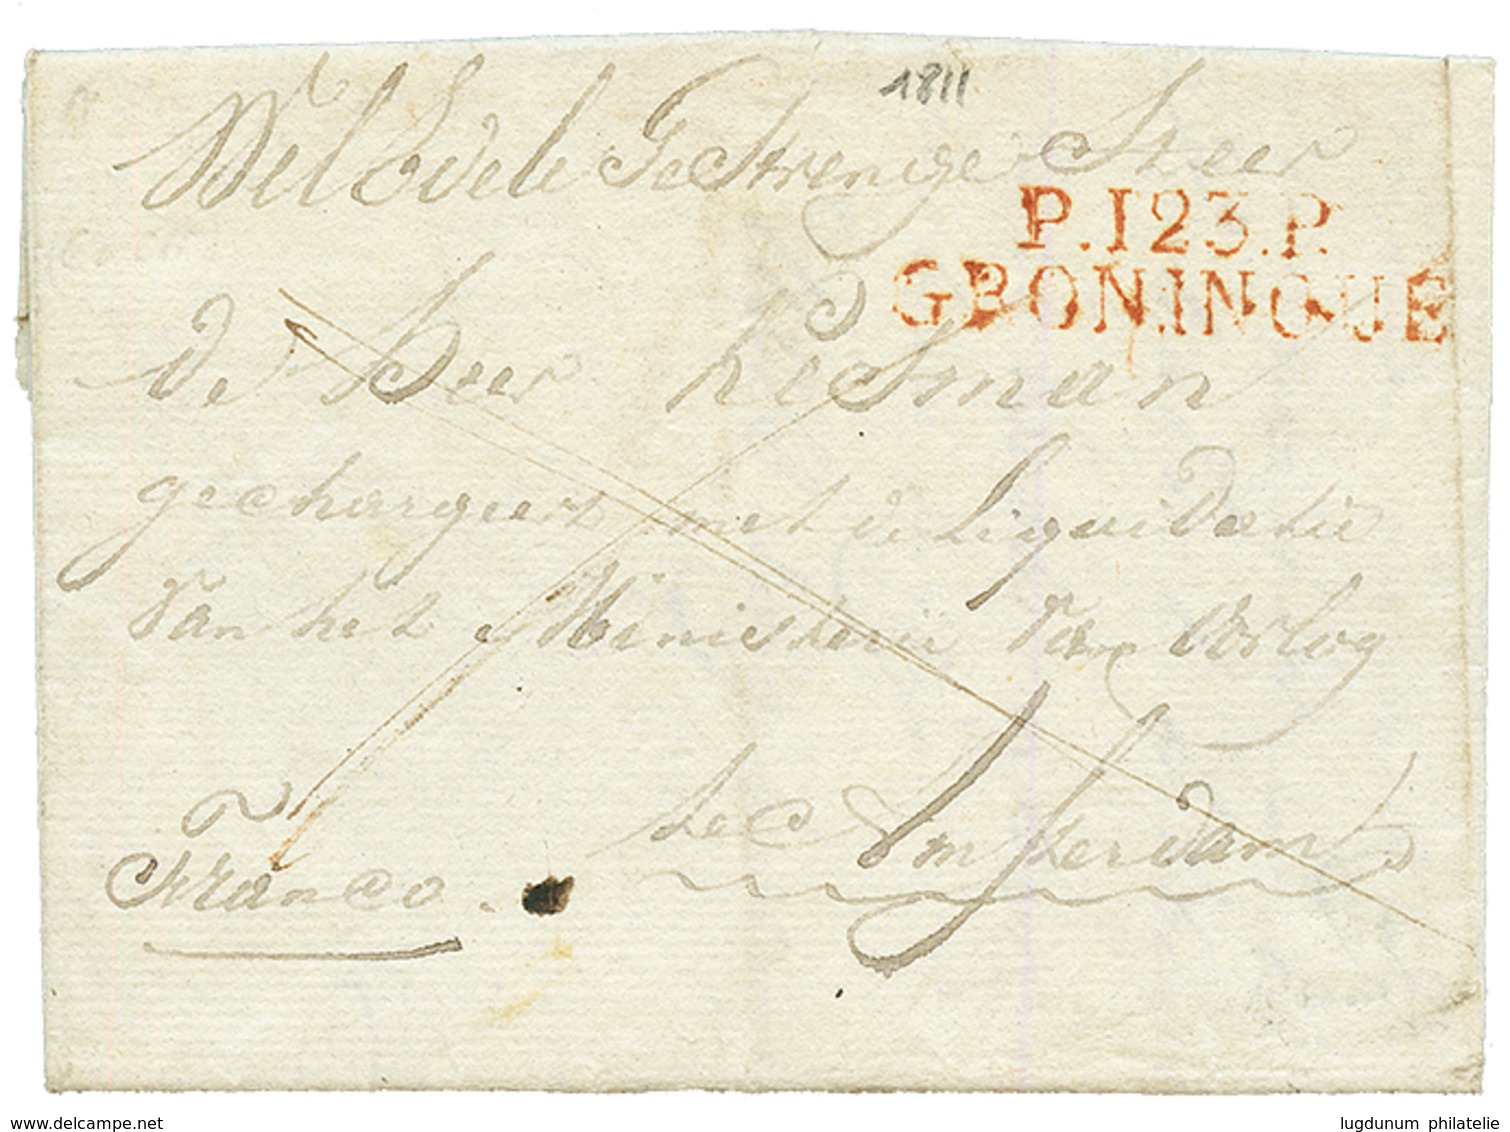 1811
Wel Edele Gestrenge Heer
P.123.P.
GRONINGUE
de Heer
gechargeert met de Liquidatie
van het Ministerie van Oorlog
te Amsterdam
Franco.
www.delcampe.net
lugdunum philatelie